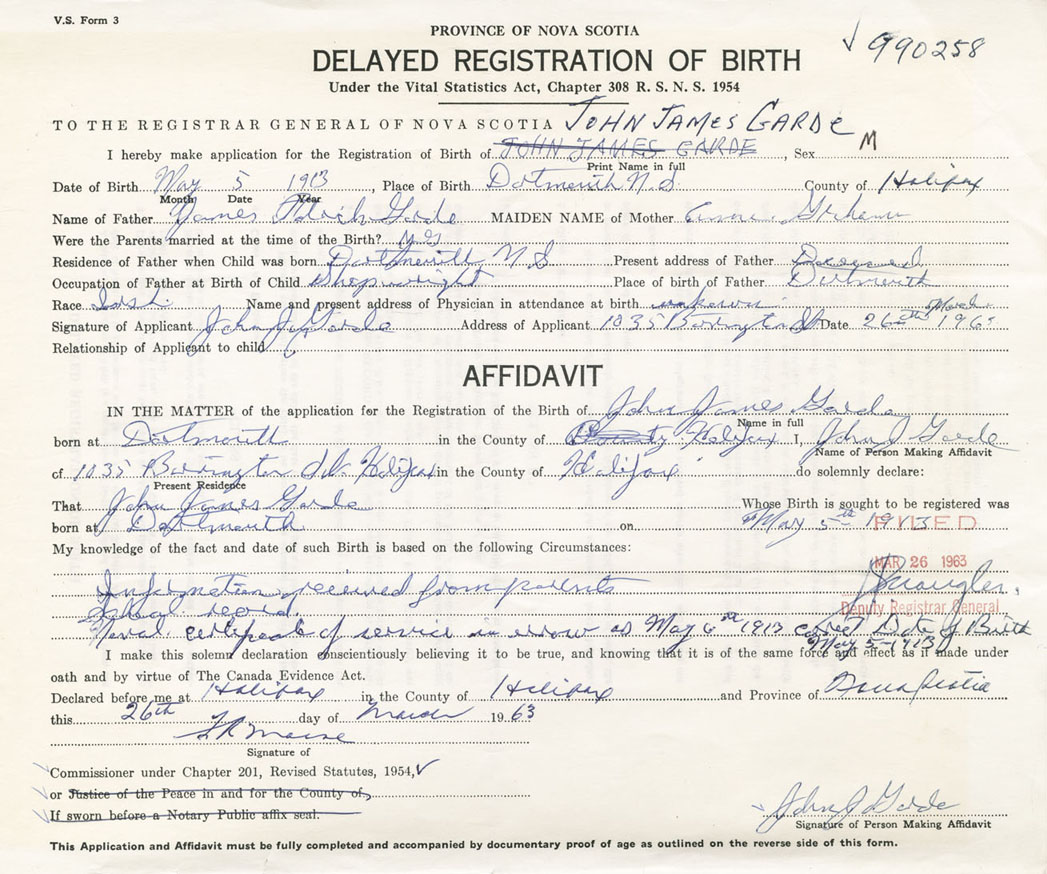 V.S. Form 3
PROVINCE OF NOVA SCOTIA
✓ 990258
DELAYED REGISTRATION OF BIRTH
Under the Vital Statistics Act, Chapter 308 R. S. N. S. 1954
TO THE REGISTRAR GENERAL OF NOVA SCOTIA JOHN JAMES GARDE
I hereby make application for the Registration of Birth of JOHN JAMES GARDE, Sex M
Print Name in full
Date of Birth May 5 1913, Place of Birth Dartmouth N.S County of Halifax
Month Date Year
Name of Father James Garde MAIDEN NAME of Mother Graham
Were the Parents married at the time of the Birth? yes
Residence of Father when Child was born Dartmouth N S Present address of Father Deceased
Occupation of Father at Birth of Child Shopwright Place of birth of Father Dartmouth
Race Irish Name and present address of Physician in attendance at birth unknown
Signature of Applicant John J Garde Address of Applicant 1035 Barrington St Date 26th March 1963
Relationship of Applicant to child
AFFIDAVIT
IN THE MATTER of the application for the Registration of the Birth of John James Garde
Name in full
born at Dartmouth in the County of Halifax I, John J Garde
Name of Person Making Affidavit
of 1035 Barrington St. Halifax in the County of Halifax do solemnly declare:
Present Residence
That John James Garde Whose Birth is sought to be registered was
born at Dartmouth on May 5th 1913
FILED
My knowledge of the fact and date of such Birth is based on the following Circumstances:
MAR 26 1963
Information received from parents
School record.
Deputy Registrar General
Naval certificate of service in error as May 6th 1913 correct Date of Birth
May 5-1913
I make this solemn declaration conscientiously believing it to be true, and knowing that it is of the same force and effect as if made under
oath and by virtue of The Canada Evidence Act.
Declared before me at Halifax in the County of Halifax and Province of Nova Scotia
this 26th day of March 1963
Signature of
Commissioner under Chapter 201, Revised Statutes, 1954, ✓
or Justice of the Peace in and for the County of,
If sworn before a Notary Public affix seal.
John J Garde
Signature of Person Making Affidavit
This Application and Affidavit must be fully completed and accompanied by documentary proof of age as outlined on the reverse side of this form.